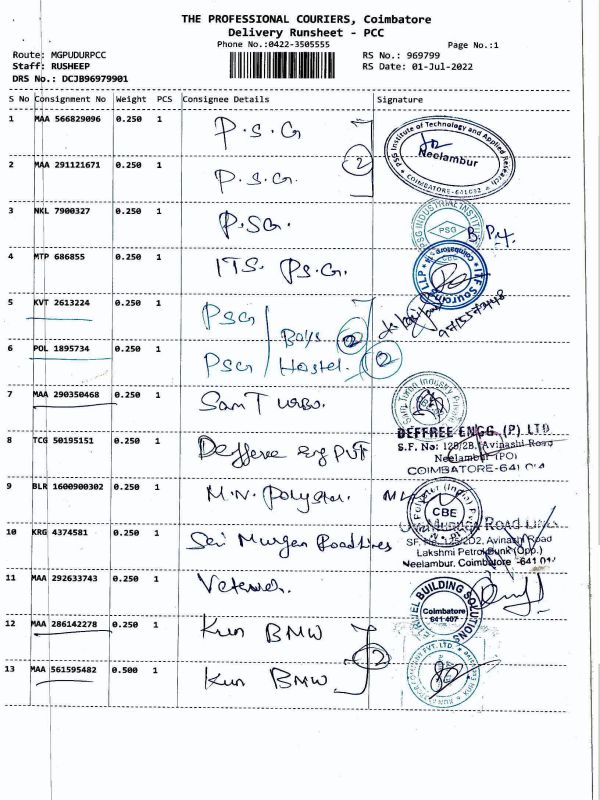 THE PROFESSIONAL COURIERS, Coimbatore
Delivery Runsheet - PCC
Phone No.:0422-3505555
Page No.:1
Route: MGPUDURPCC
RS No.: 969799
Staff: RUSHEEP
RS Date: 01-Jul-2022
DRS No.: DCJB96979901
S No Consignment No Weight PCS Consignee Details Signature
1 MAA 566829096 0.250 1 P.S.G
PSG Institute of Technology and Applied Research
Neelambur
COIMBATORE-641062
2 MAA 291121671 0.250 1 P.S.G. 2
3 NKL 7900327 0.250 1 P.SG.
PSG INDUSTRIAL INSTITUTE
PSG
4 MTP 686855 0.250 1 ITS. PS.G.
ITF Sourcing LLP
Coimbatore
5 KVT 2613224 0.250 1 PSG Boys 2
6 POL 1895734 0.250 1 PSG Hostel. 2
7 MAA 290350468 0.250 1 Sam Turbo.
Sam Turbo Industry Private
8 TCG 50195151 0.250 1 Deffree Eng PVT
DEFFREE ENGG. (P) LTD
S.F. No: 125/2B, Avinashi Road
Neelambur (PO)
COIMBATORE-641 014
9 BLR 1600900302 0.250 1 M.N. Polystar.
CBE
10 KRG 4374581 0.250 1 Sri Murgan Roadlines
Road Lines
Avinashi Road
Lakshmi Petrol Bunk (Opp.)
Neelambur, Coimbatore -641 014
11 MAA 292633743 0.250 1
BUILDING SOLUTIONS
Coimbatore
641 407
12 MAA 286142278 0.250 1 Kun BMW
13 MAA 561595482 0.500 1 Kun BMW 2